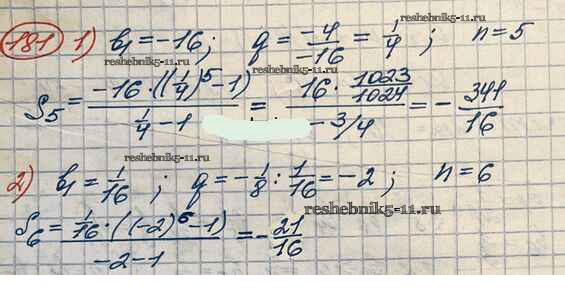 181 1) b₁ = -16; q = -4/-16 = 1/4; n = 5
reshebnik5-11.ru
reshebnik5-11.ru
S₅ = -16·((1/4)⁵-1)/(1/4 - 1) = 16·1023/1024/(-3/4) = -341/16
reshebnik5-11.ru
2) b₁ = 1/16; q = -1/8 : 1/16 = -2; n = 6
reshebnik5-11.ru
S₆ = 1/16·((-2)⁶-1)/(-2-1) = -21/16